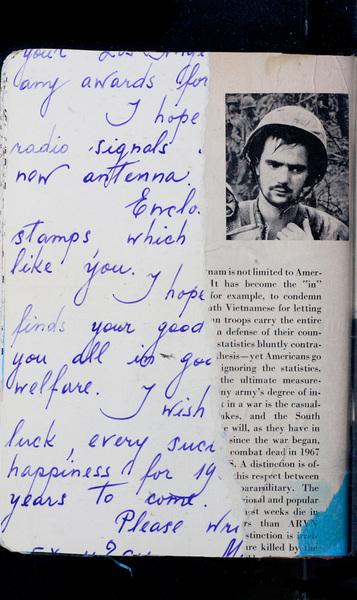 your Los
any awards for
I hope
radio signals.
new antenna.
Enclo.
stamps, which
like you.
I hope
finds your good
you all in goo
welfare.
I wish
luck, every succ
happiness for 19.
years to come.
Please wri
nam is not limited to Amer-
It has become the "in"
for example, to condemn
uth Vietnamese for letting
an troops carry the entire
n defense of their coun-
statistics bluntly contra-
hesis—yet Americans go
ignoring the statistics.
the ultimate measure-
ny army's degree of in-
t in a war is the casual-
akes, and the South
e will, as they have in
since the war began,
combat dead in 1967
S. A distinction is of-
this respect between
paramilitary. The
gional and popular
ost weeks die in
rs than ARVN
stinction is
are killed by the